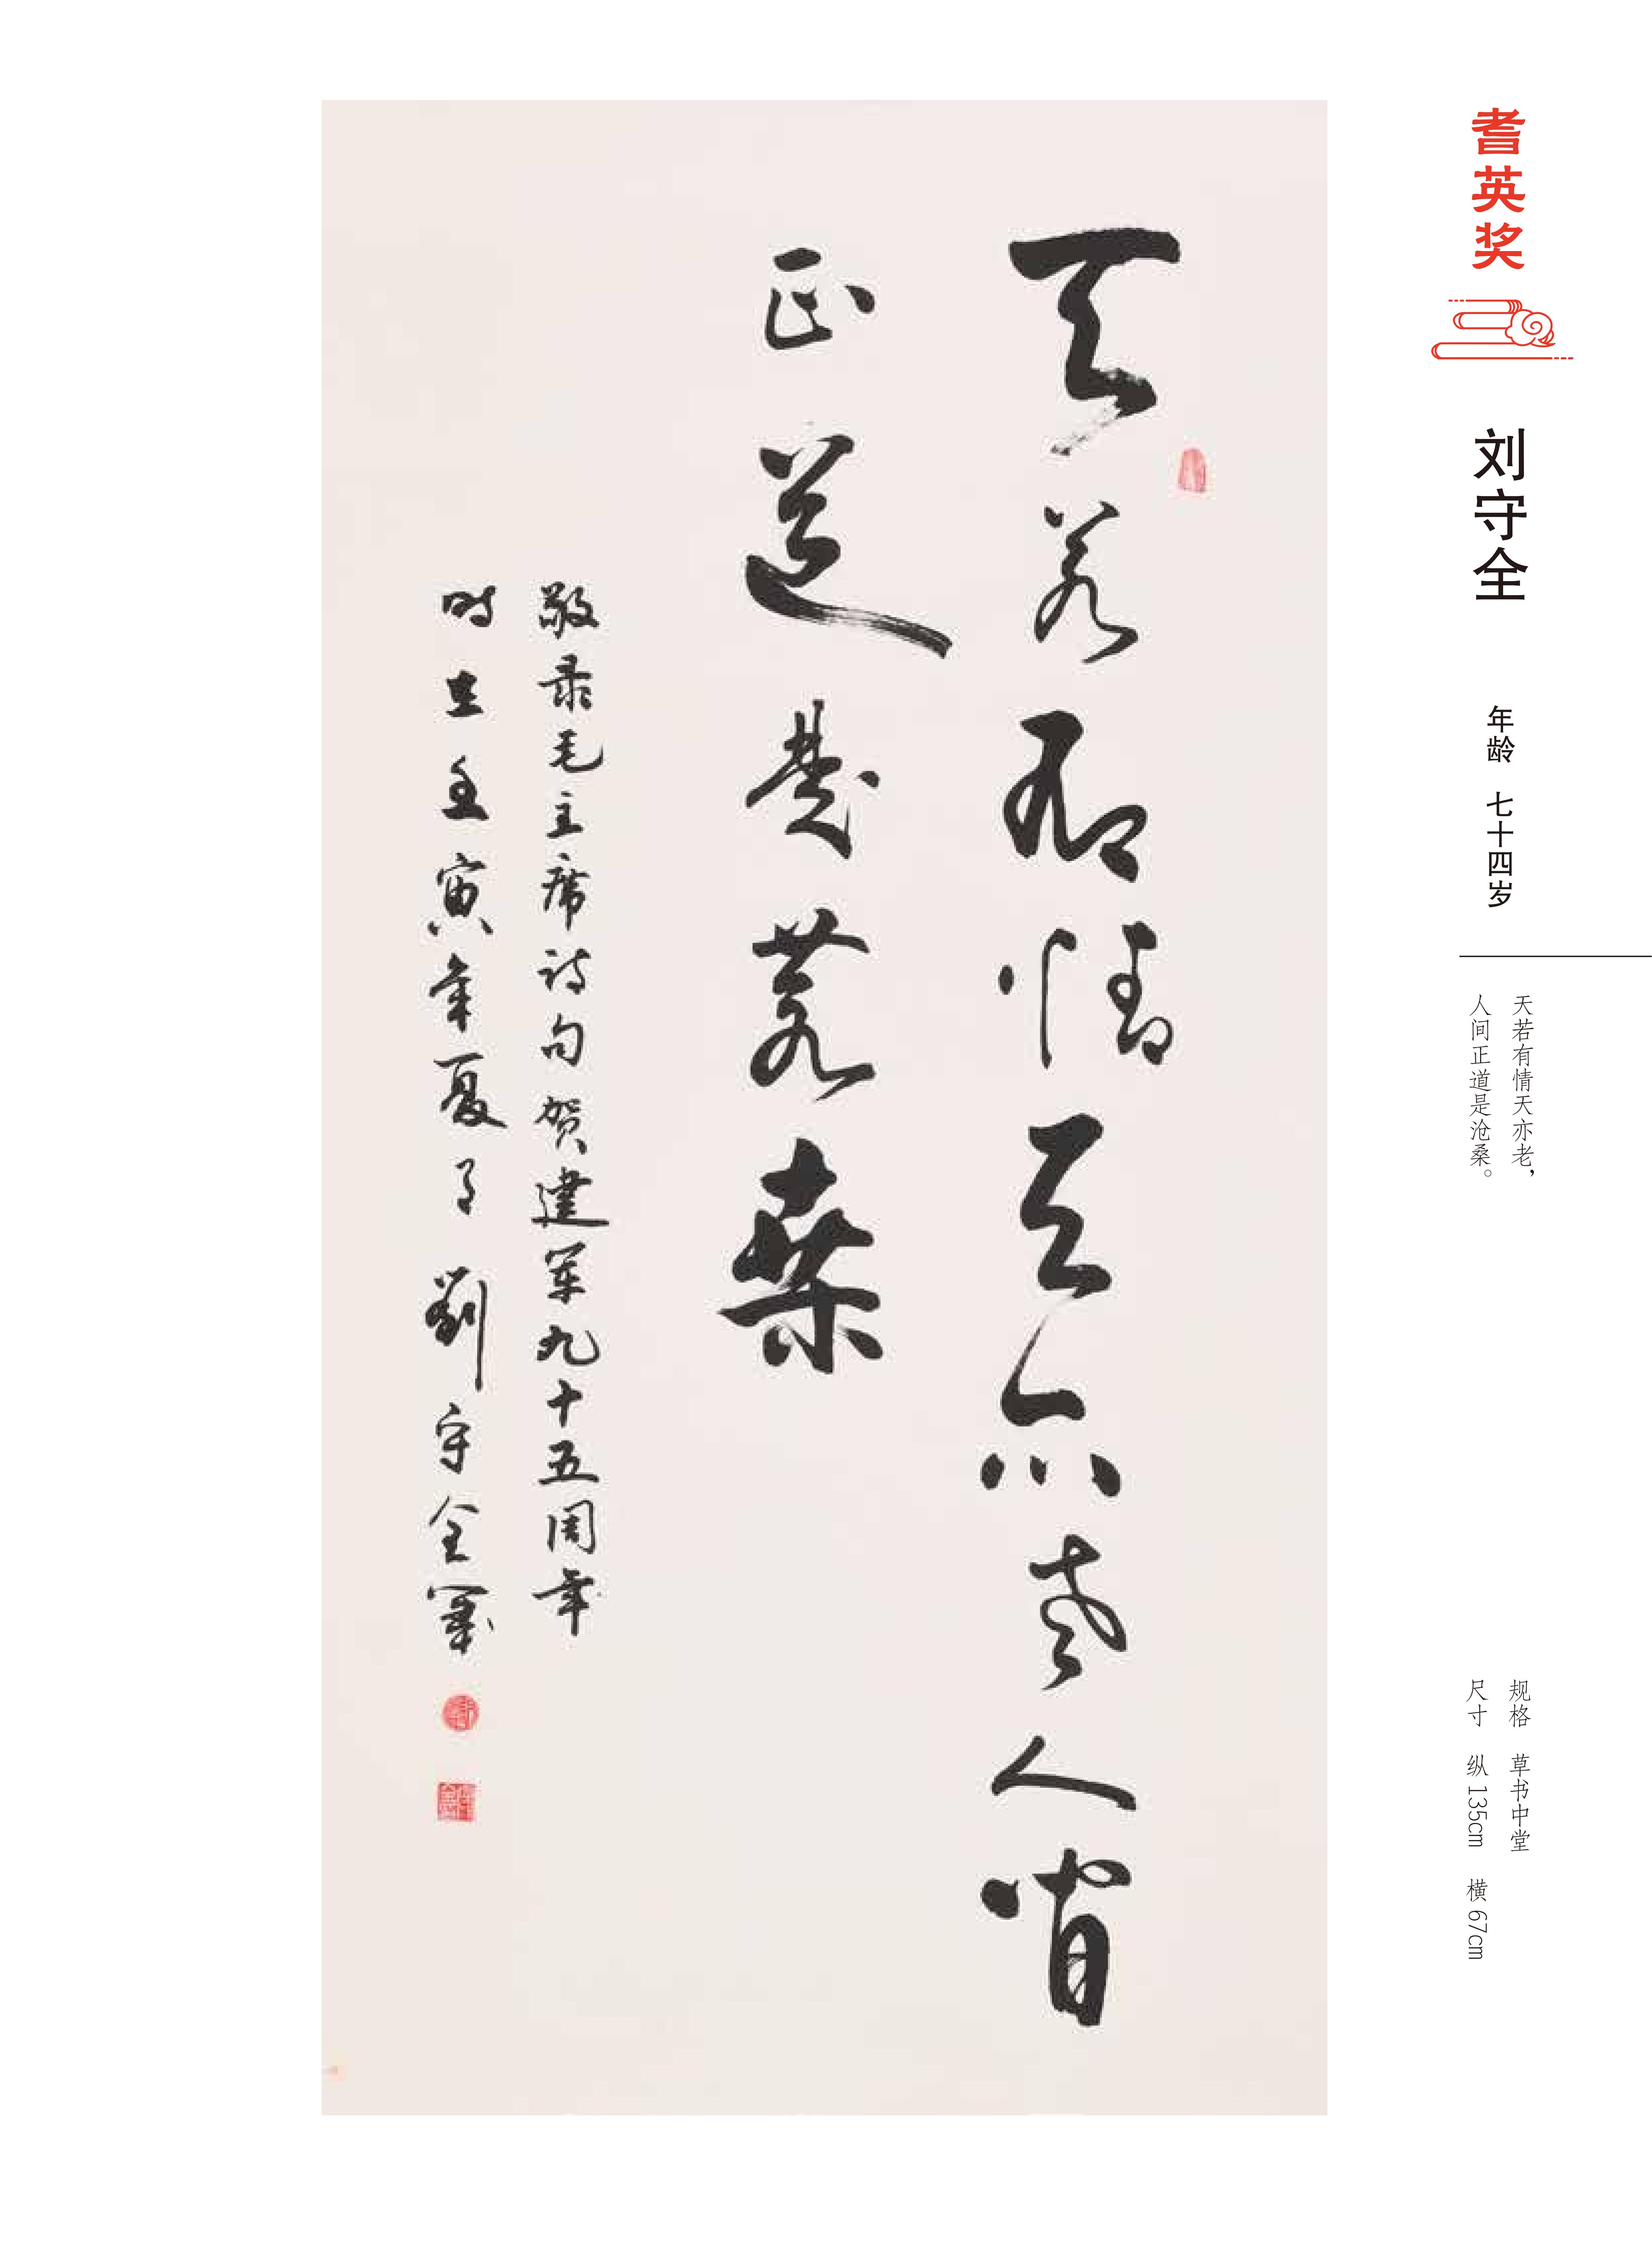 耆英奖
刘守全
年龄 七十四岁
天若有情天亦老，
人间正道是沧桑。
规格 草书中堂
尺寸 纵 135cm 横 67cm
天若有情天亦老人間
正道是蒼桑
敬录毛主席诗句贺建军九十五周年
时在壬寅年夏月劉守全